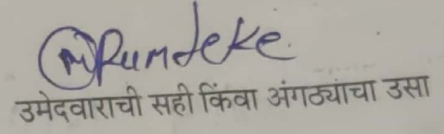 Rumdeke
उमेदवाराची सही किंवा अंगठ्याचा उसा